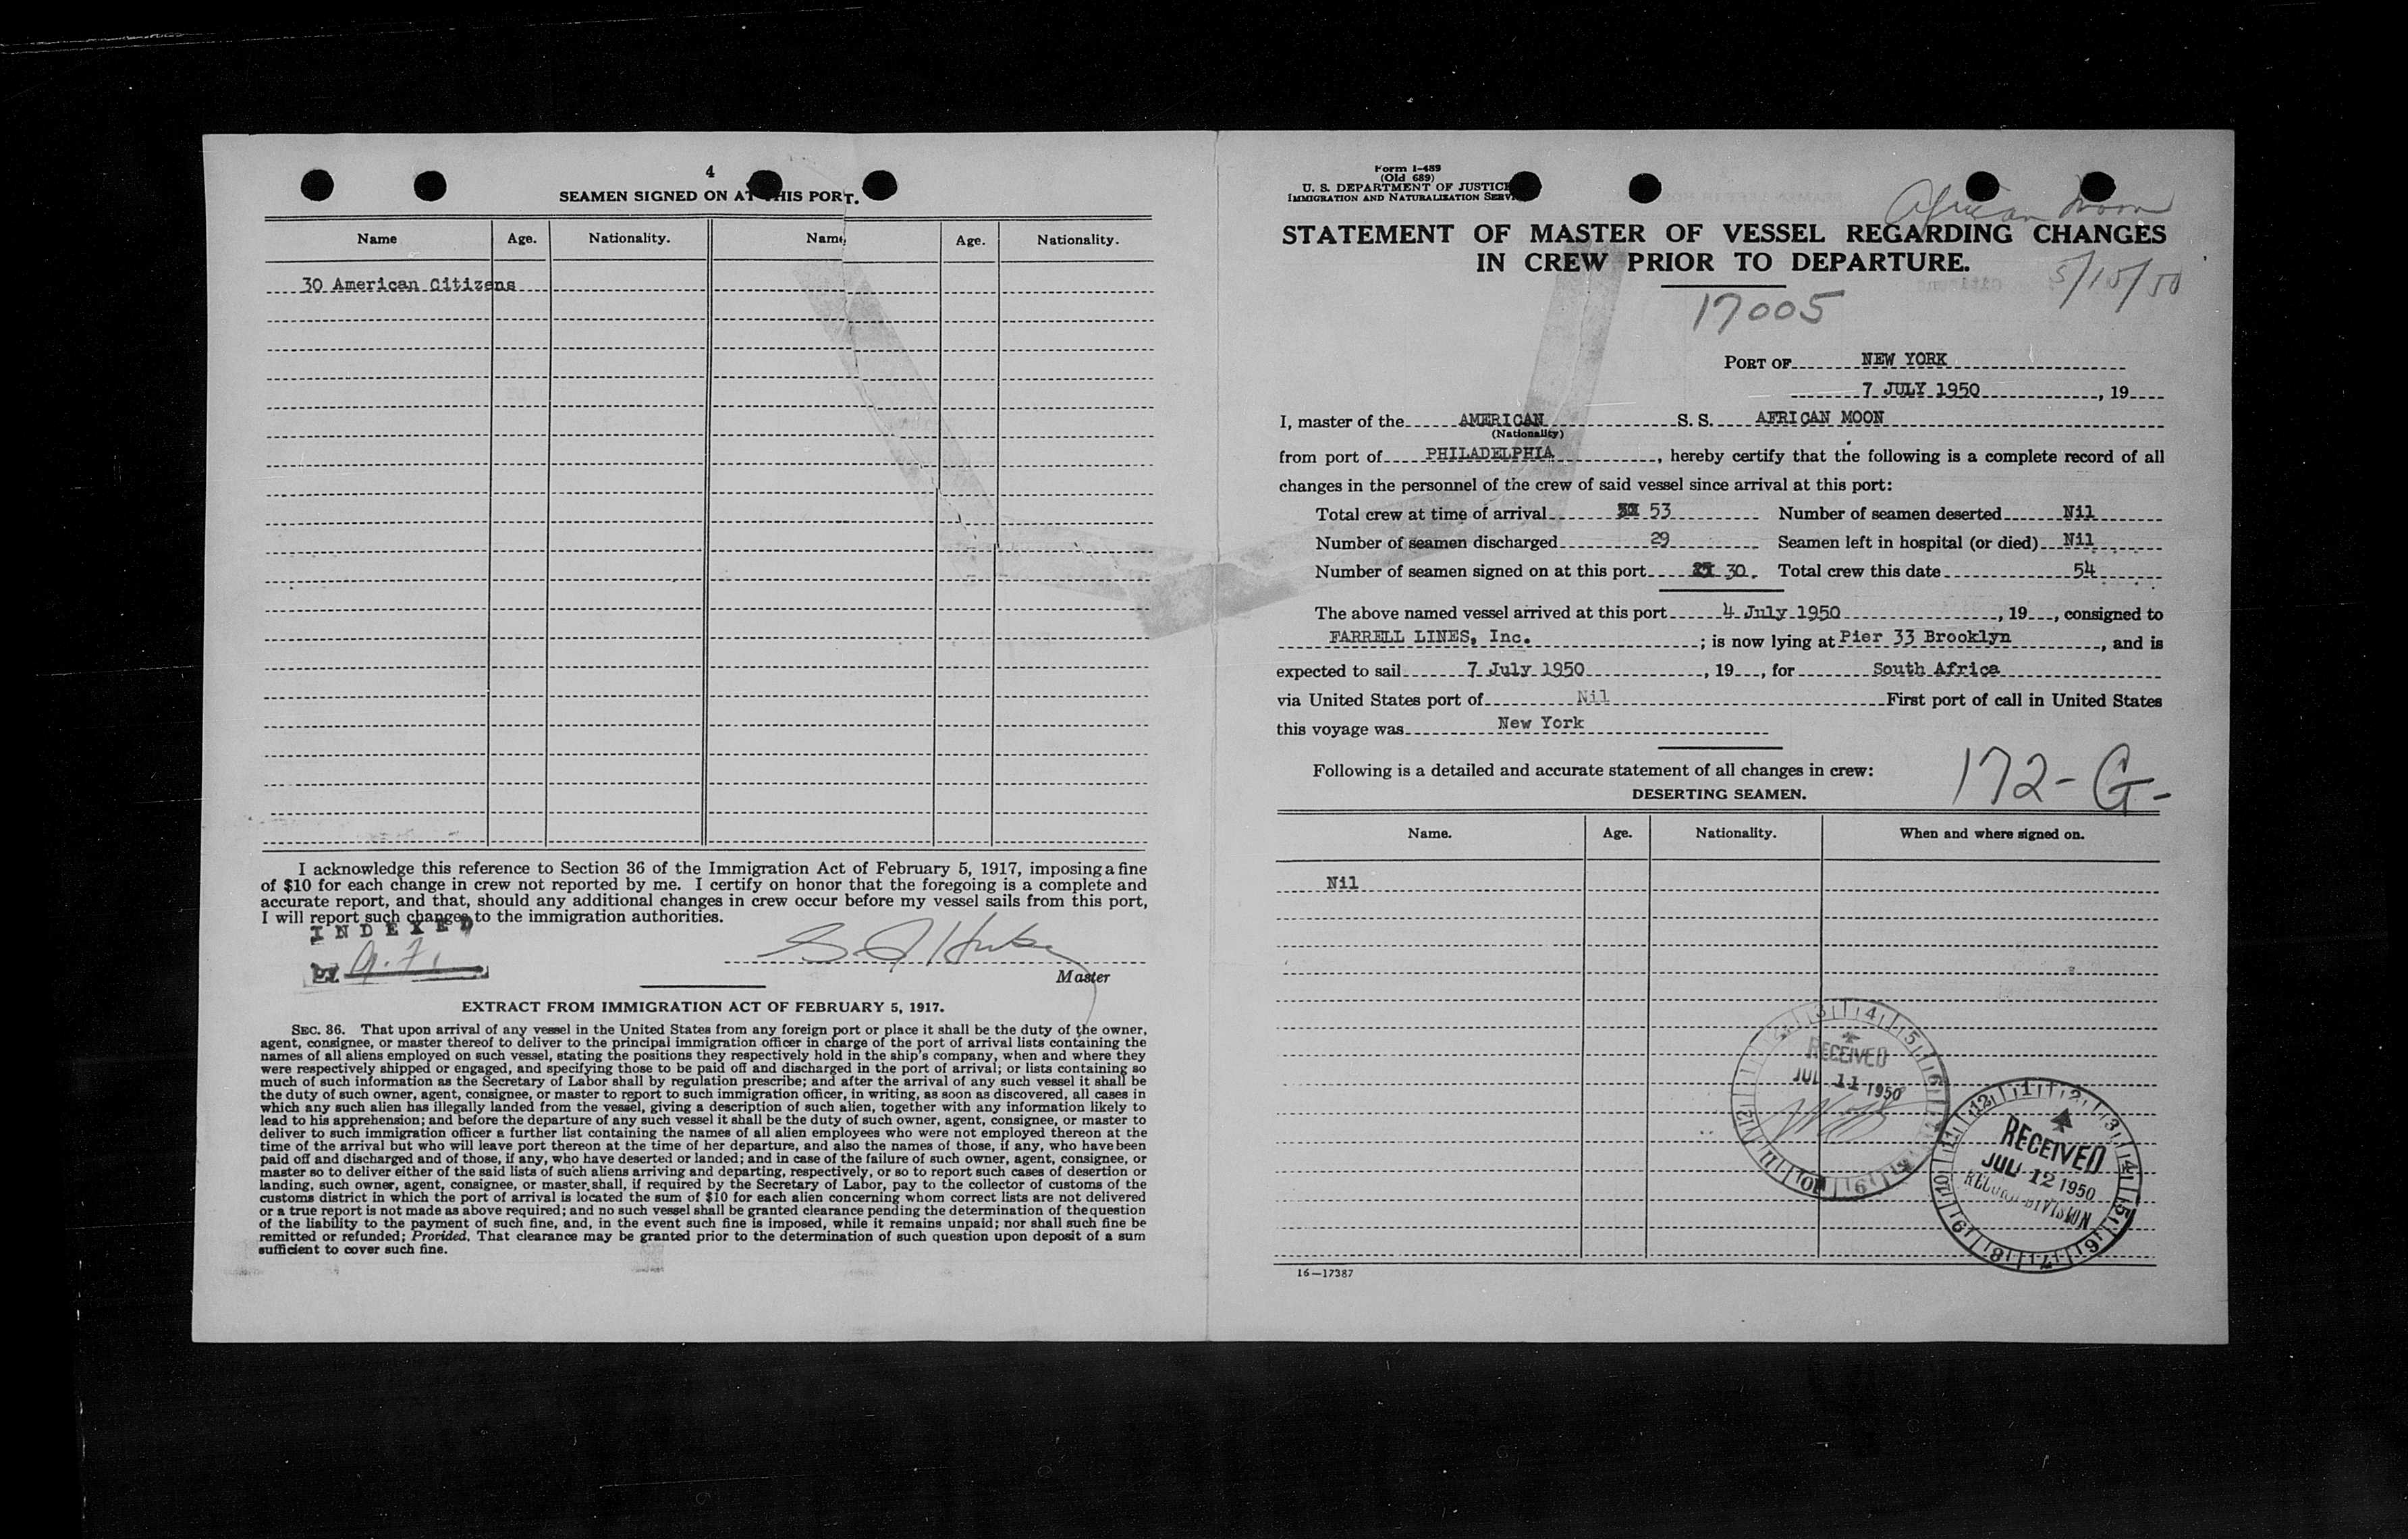 4
SEAMEN SIGNED ON AT THIS PORT.
Name Age. Nationality. Name Age. Nationality.
30 American Citizens
I acknowledge this reference to Section 36 of the Immigration Act of February 5, 1917, imposing a fine
of $10 for each change in crew not reported by me. I certify on honor that the foregoing is a complete and
accurate report, and that, should any additional changes in crew occur before my vessel sails from this port,
I will report such changes to the immigration authorities.
INDEXED
by
Master
EXTRACT FROM IMMIGRATION ACT OF FEBRUARY 5, 1917.
SEC. 36. That upon arrival of any vessel in the United States from any foreign port or place it shall be the duty of the owner,
agent, consignee, or master thereof to deliver to the principal immigration officer in charge of the port of arrival lists containing the
names of all aliens employed on such vessel, stating the positions they respectively hold in the ship's company, when and where they
were respectively shipped or engaged, and specifying those to be paid off and discharged in the port of arrival; or lists containing so
much of such information as the Secretary of Labor shall by regulation prescribe; and after the arrival of any such vessel it shall be
the duty of such owner, agent, consignee, or master to report to such immigration officer, in writing, as soon as discovered, all cases in
which any such alien has illegally landed from the vessel, giving a description of such alien, together with any information likely to
lead to his apprehension; and before the departure of any such vessel it shall be the duty of such owner, agent, consignee, or master to
deliver to such immigration officer a further list containing the names of all alien employees who were not employed thereon at the
time of the arrival but who will leave port thereon at the time of her departure, and also the names of those, if any, who have been
paid off and discharged and of those, if any, who have deserted or landed; and in case of the failure of such owner, agent, consignee, or
master so to deliver either of the said lists of such aliens arriving and departing, respectively, or so to report such cases of desertion or
landing, such owner, agent, consignee, or master, shall, if required by the Secretary of Labor, pay to the collector of customs of the
customs district in which the port of arrival is located the sum of $10 for each alien concerning whom correct lists are not delivered
or a true report is not made as above required; and no such vessel shall be granted clearance pending the determination of the question
of the liability to the payment of such fine, and, in the event such fine is imposed, while it remains unpaid; nor shall such fine be
remitted or refunded; Provided, That clearance may be granted prior to the determination of such question upon deposit of a sum
sufficient to cover such fine.
Form I-489
(Old 689)
U. S. DEPARTMENT OF JUSTICE
IMMIGRATION AND NATURALIZATION SERVICE
African Moon
STATEMENT OF MASTER OF VESSEL REGARDING CHANGES
IN CREW PRIOR TO DEPARTURE.
5/15/50
17005
PORT OF NEW YORK
7 JULY 1950, 19
I, master of the AMERICAN S. S. AFRICAN MOON
(Nationality)
from port of PHILADELPHIA, hereby certify that the following is a complete record of all
changes in the personnel of the crew of said vessel since arrival at this port:
Total crew at time of arrival 53 Number of seamen deserted Nil
Number of seamen discharged 29 Seamen left in hospital (or died) Nil
Number of seamen signed on at this port 30. Total crew this date 54
The above named vessel arrived at this port 4 July 1950, 19, consigned to
FARRELL LINES, Inc.; is now lying at Pier 33 Brooklyn, and is
expected to sail 7 July 1950, 19, for South Africa
via United States port of Nil First port of call in United States
this voyage was New York
Following is a detailed and accurate statement of all changes in crew:
172-G-
DESERTING SEAMEN.
Name. Age. Nationality. When and where signed on.
Nil
RECEIVED
JUL 11 1950
RECEIVED
JUL 12 1950
RECORD DIVISION
16—17387